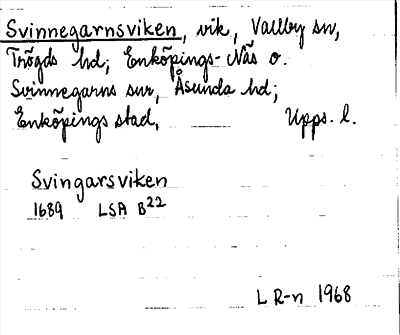 Svinnegarnsviken, vik, Vallby sn,
Trögds hd; Enköpings-Näs o.
Svinnegarns snr, Åsunda hd;
Enköpings stad, Upps. l.
Svingarsviken
1689 LSA B22
L R-n 1968